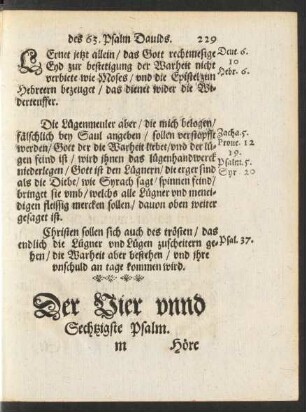 des 63. Psalm Dauids. 229
LErnet jetzt allein / das Gott rechtmeſige Deut. 6.
Eyd zur beſtetigung der Warheit nicht 10
verbiete wie Moſes / vnd die Epiſtel zun Hebr. 6.
Hebreern bezeuget / das dienet wider die Wi-
derteuffer.
Die Lügenmeuler aber / die mich belogen /
fälſchlich bey Saul angeben / ſollen verſtopfft Zacha. 5.
werden / Gott der die Warheit liebet / vnd der lü- Prouer. 12
gen feind iſt / wird ihnen das lügenhandwerck 19.
niederlegen / Gott iſt den Lügnern / die erger ſind Pſalm. 5.
als die Diebe / wie Syrach ſagt / ſpinnen feind / Syr 20
bringet ſie vmb / welchs alle Lügner vnd menei-
digen fleiſſig mercken ſollen / dauon oben weiter
geſaget iſt.
Chriſten ſollen ſich auch des tröſten / das
endlich die Lügner vnd Lügen zuſcheitern ge- Pſal. 37.
hen / die Warheit aber beſtehen / vnd ihre
vnſchuld an tage kommen wird.
Der Vier vnnd
Sechtzigſte Pſalm.
m Höre